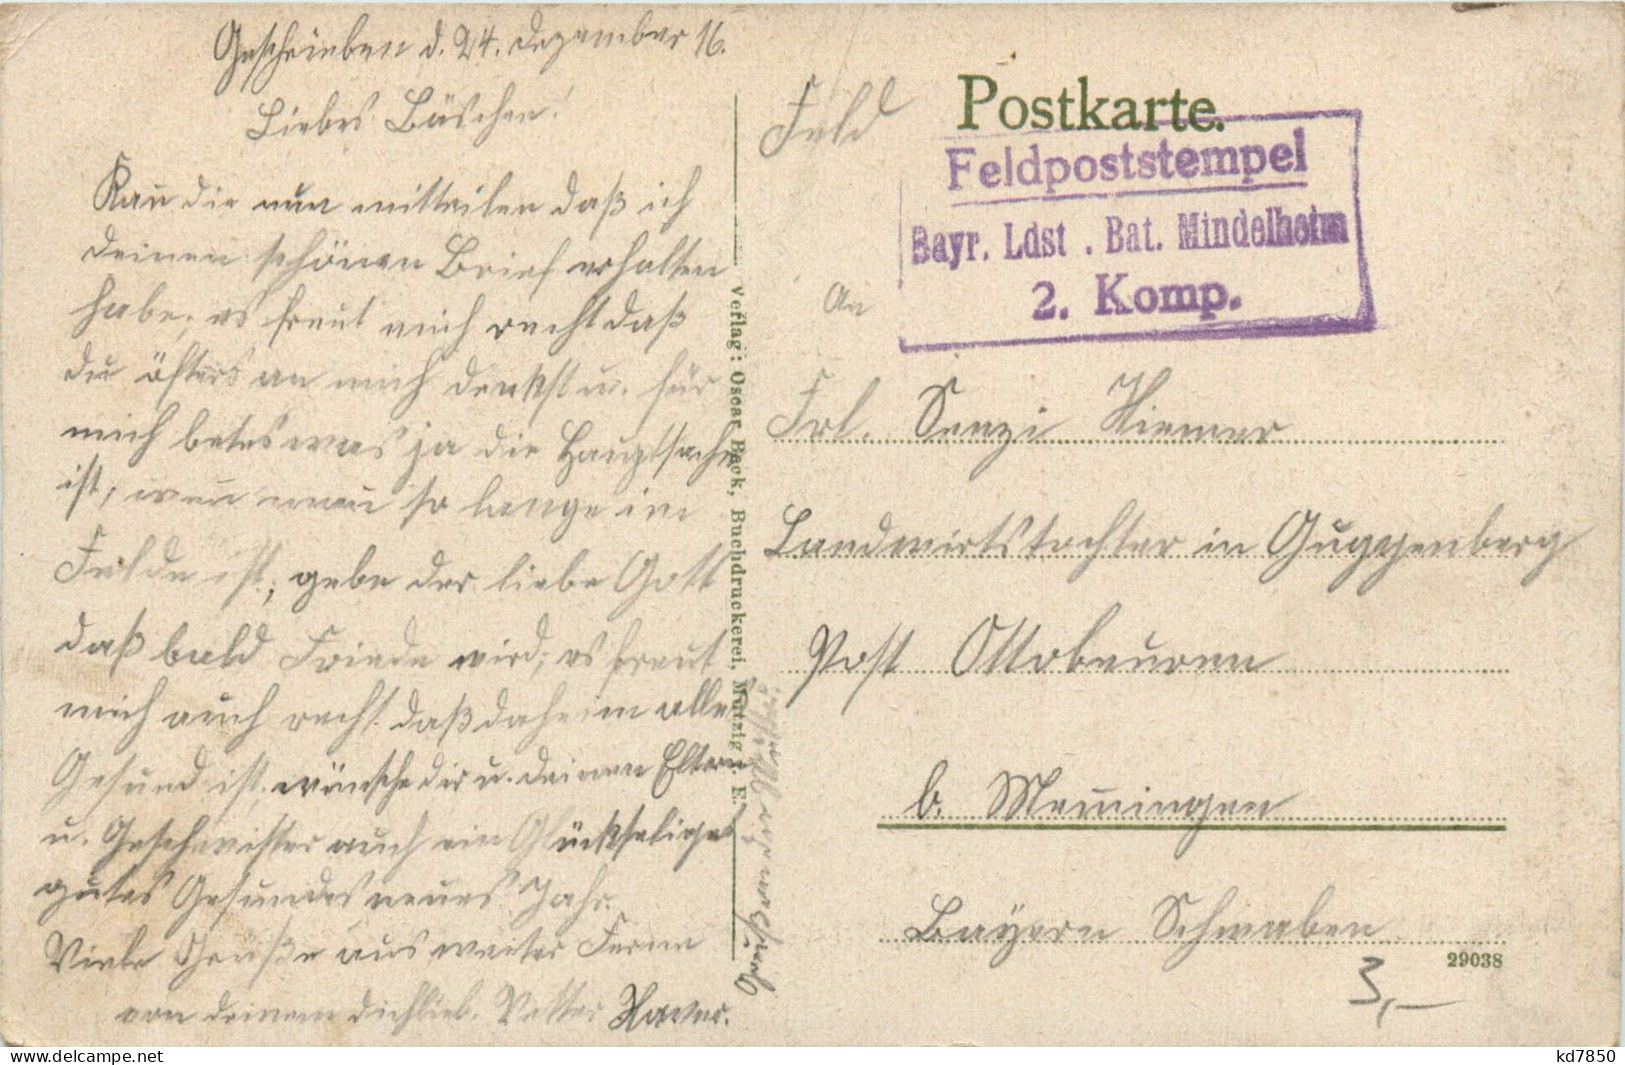 Geschrieben d. 24. Dezember 16.
Liebes Bäschen!
Kan̄ dir nun mitteilen daß ich
deinen schönen Brief erhalten
habe, es freut mich recht daß
du öfters an mich denkst u. für
mich betes was ja die Hauptsache
ist, wen̄ man so lange im
Felde ist, gebe der liebe Gott
daß bald Friede wird, es freut
mich auch recht daß daheim alle
Gesund ist, wünsche dir u. deinen Eltern
u. Geschwister auch ein Glückseliges
gutes Gesundes neues Jahr.
Viele Grüße aus weiter Ferne
von deinem dichlieb. Vetter Xaver.
Verlag: Oscar Beck, Buchdruckerei, Mutzig i. E.
Postkarte.
Feld
Feldpoststempel
Bayr. Ldst. Bat. Mindelheim
2. Komp.
An
Frl. Senzi Hiemer
Landwirtstochter in Guggenberg
Post Ottobeuren
b. Mem̄ingen
Bayern Schwaben
29038
3,—
www.delcampe.net
kd7850